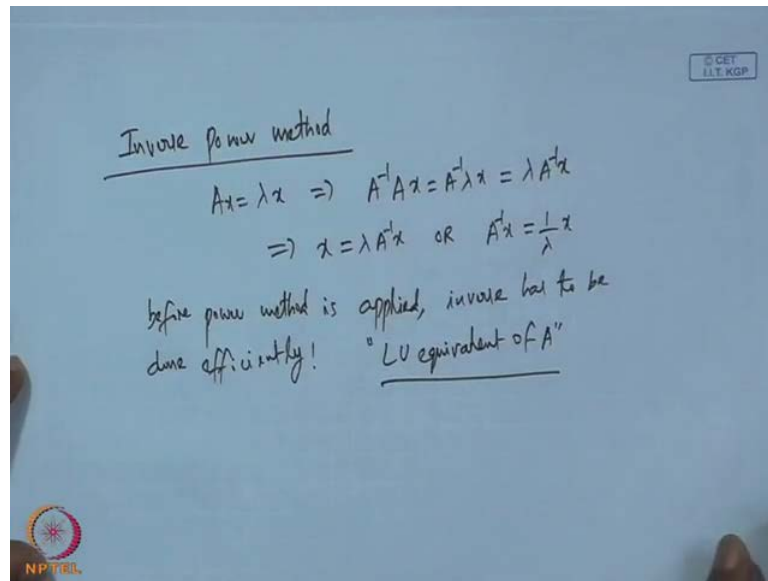 © CET
I.I.T. KGP
Inverse power method
Ax = λx ⇒ A⁻¹Ax = A⁻¹λx = λA⁻¹x
⇒ x = λA⁻¹x OR A⁻¹x = 1/λ x
before power method is applied, inverse has to be
done efficiently! "LU equivalent of A"
NPTEL